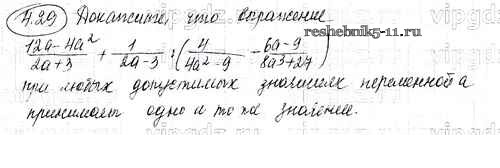 4.29 Докажите, что выражение
(12a-4a²)/(2a+3) + 1/(2a-3) : (4/(4a²-9) - (6a-9)/(8a³+27))
при любых допустимых значениях переменной a
принимает одно и то же значение.
reshebnik5-11.ru